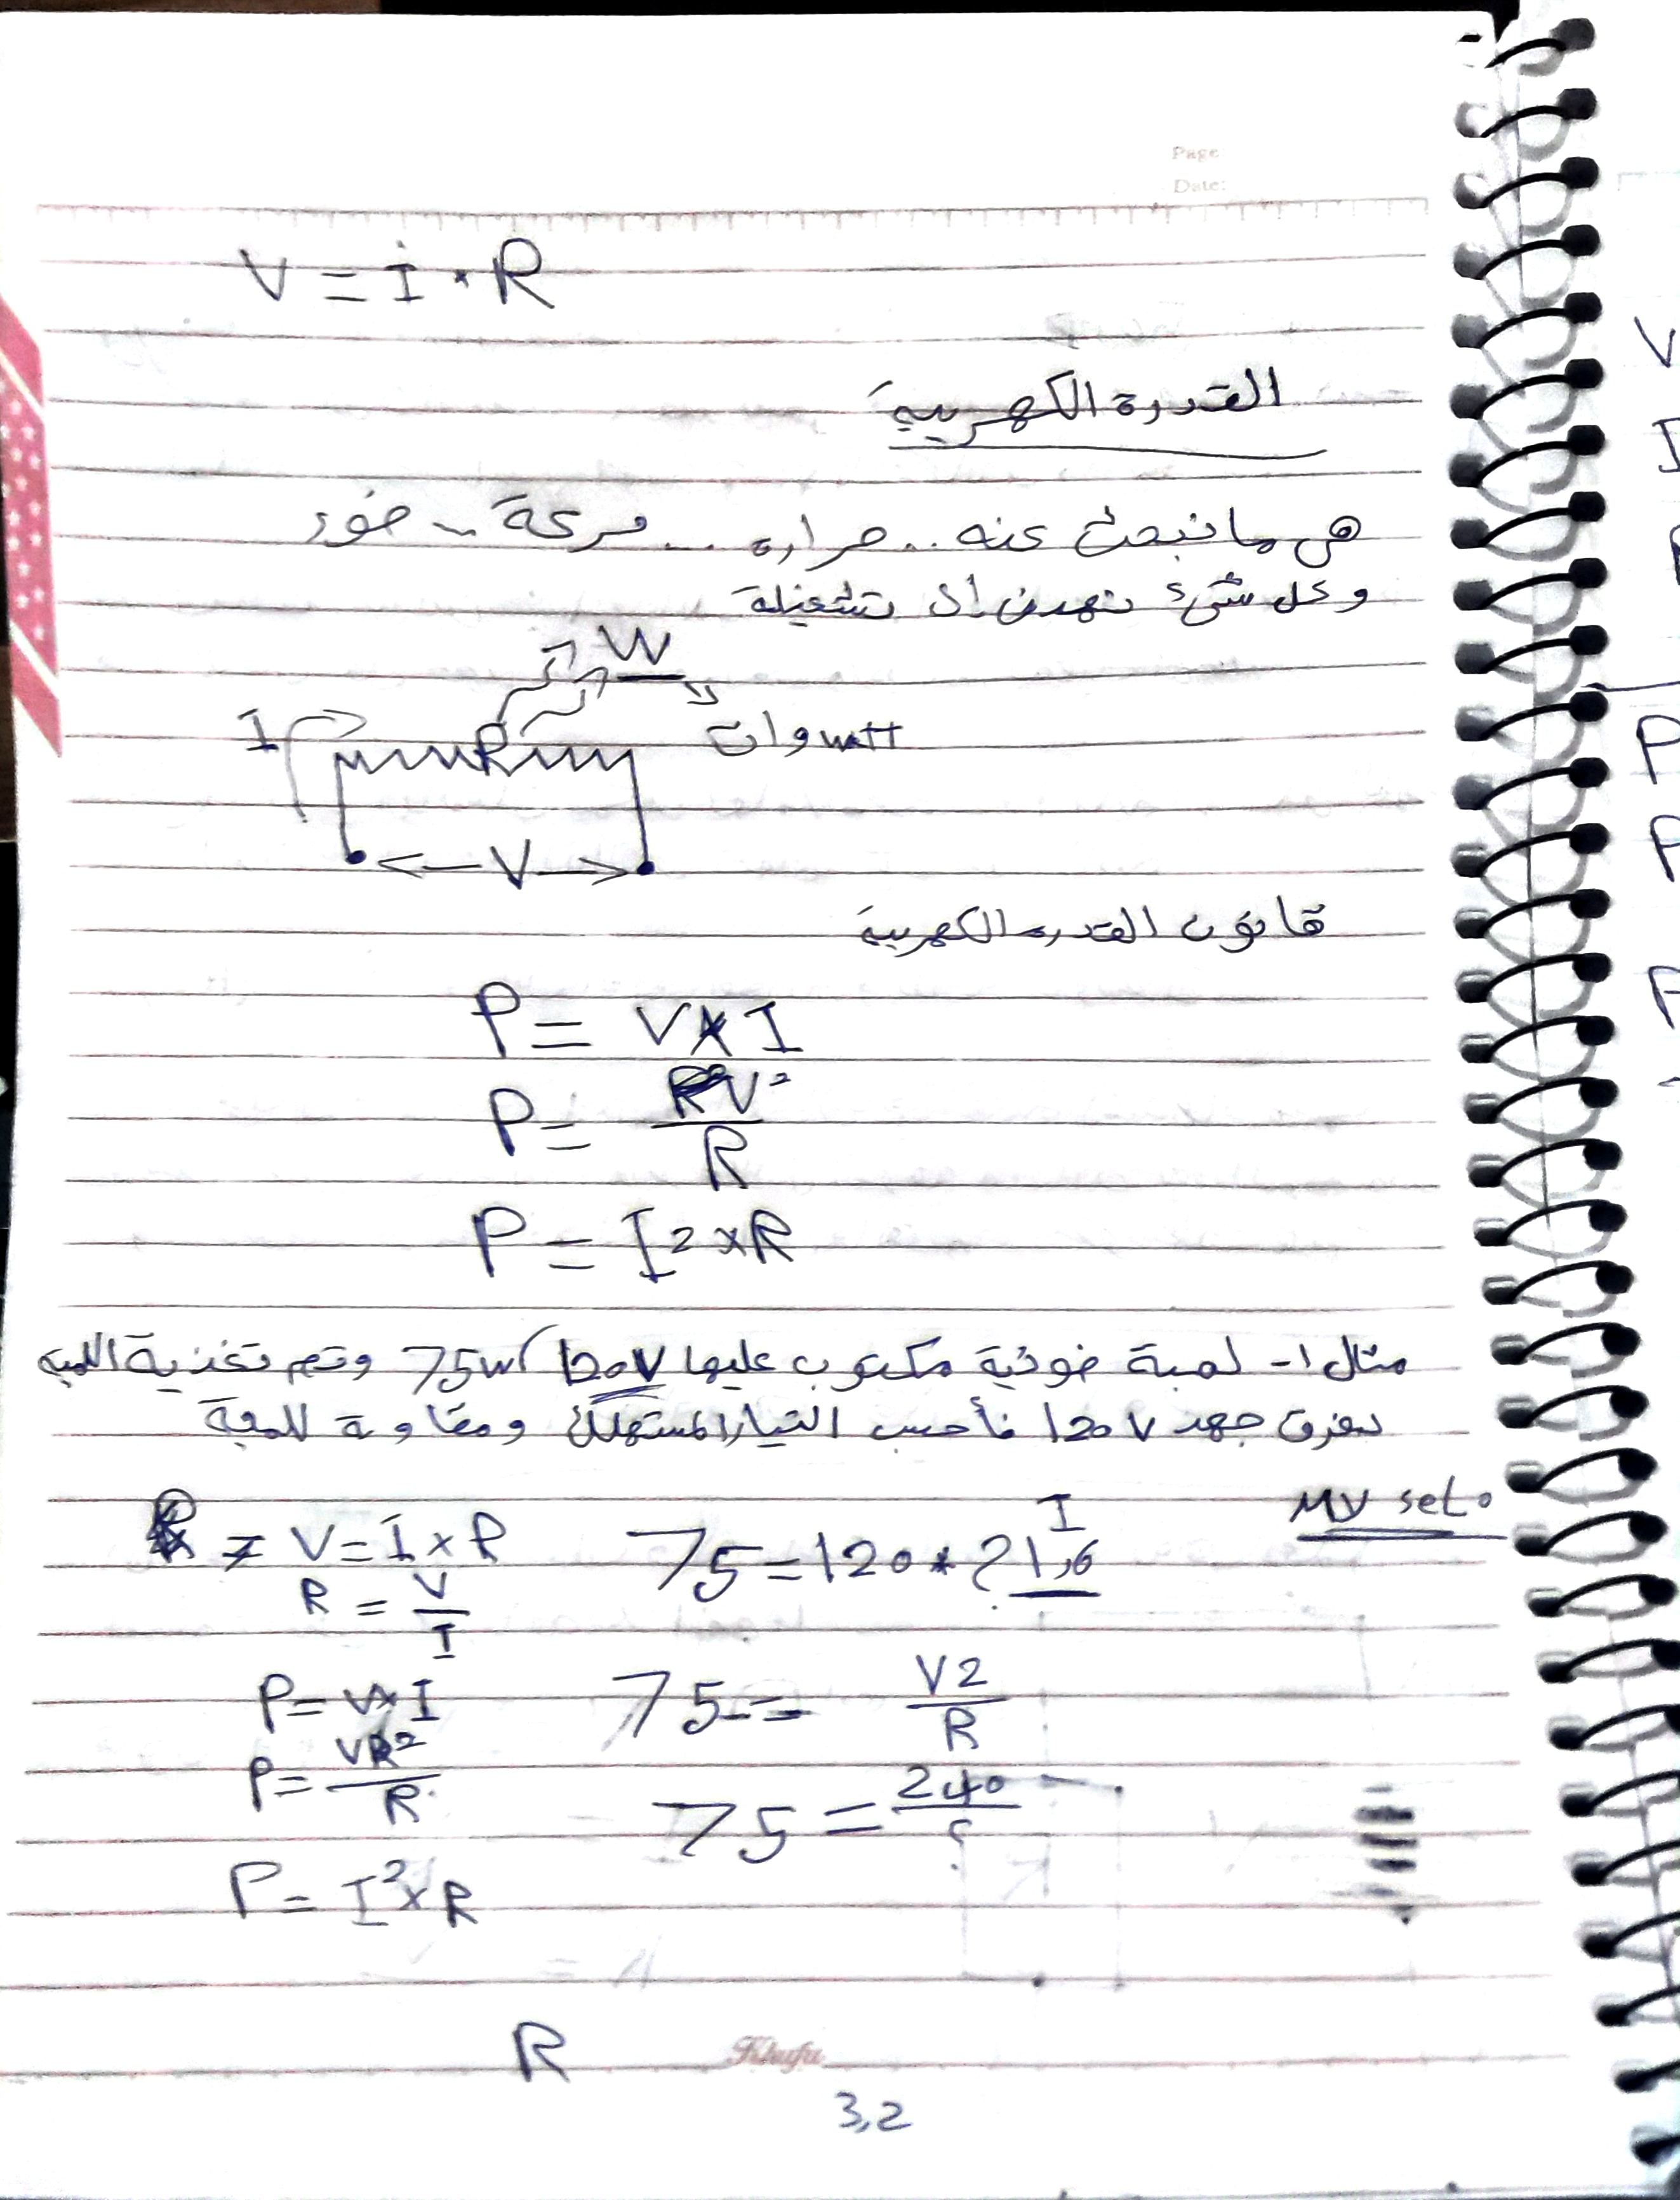 Page
Date:
V = I * R
القدرة الكهربية
هي ما نبحث عنه .. حراره ... حركة .. ضوء
وكل شيء نهدف الى تشغيلة
W
I R وات watt
V
قانون القدره الكهربية
P = V x I
P = V²/R
P = I² x R
مثال 1- لمبة ضوئية مكتوب عليها 75w / 120V وتم تغذية اللمبه
بفرق جهد 120V فأحسب التيار المستهلك ومقاومة اللمبة
My set.
V = I x R 75 = 120 * ? 1,6 I
R = V/I
P = V x I 75 = V2/R
P = VR²/R 75 = 240/؟
P = I² x R
R
Khufu
3,2